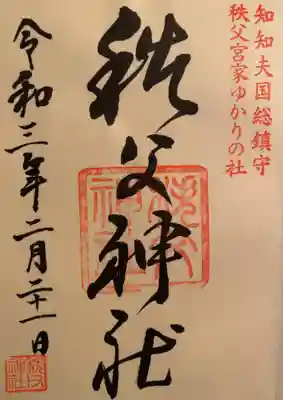 知知夫国総鎮守
秩父宮家ゆかりの社
秩父神社
令和三年二月二十一日